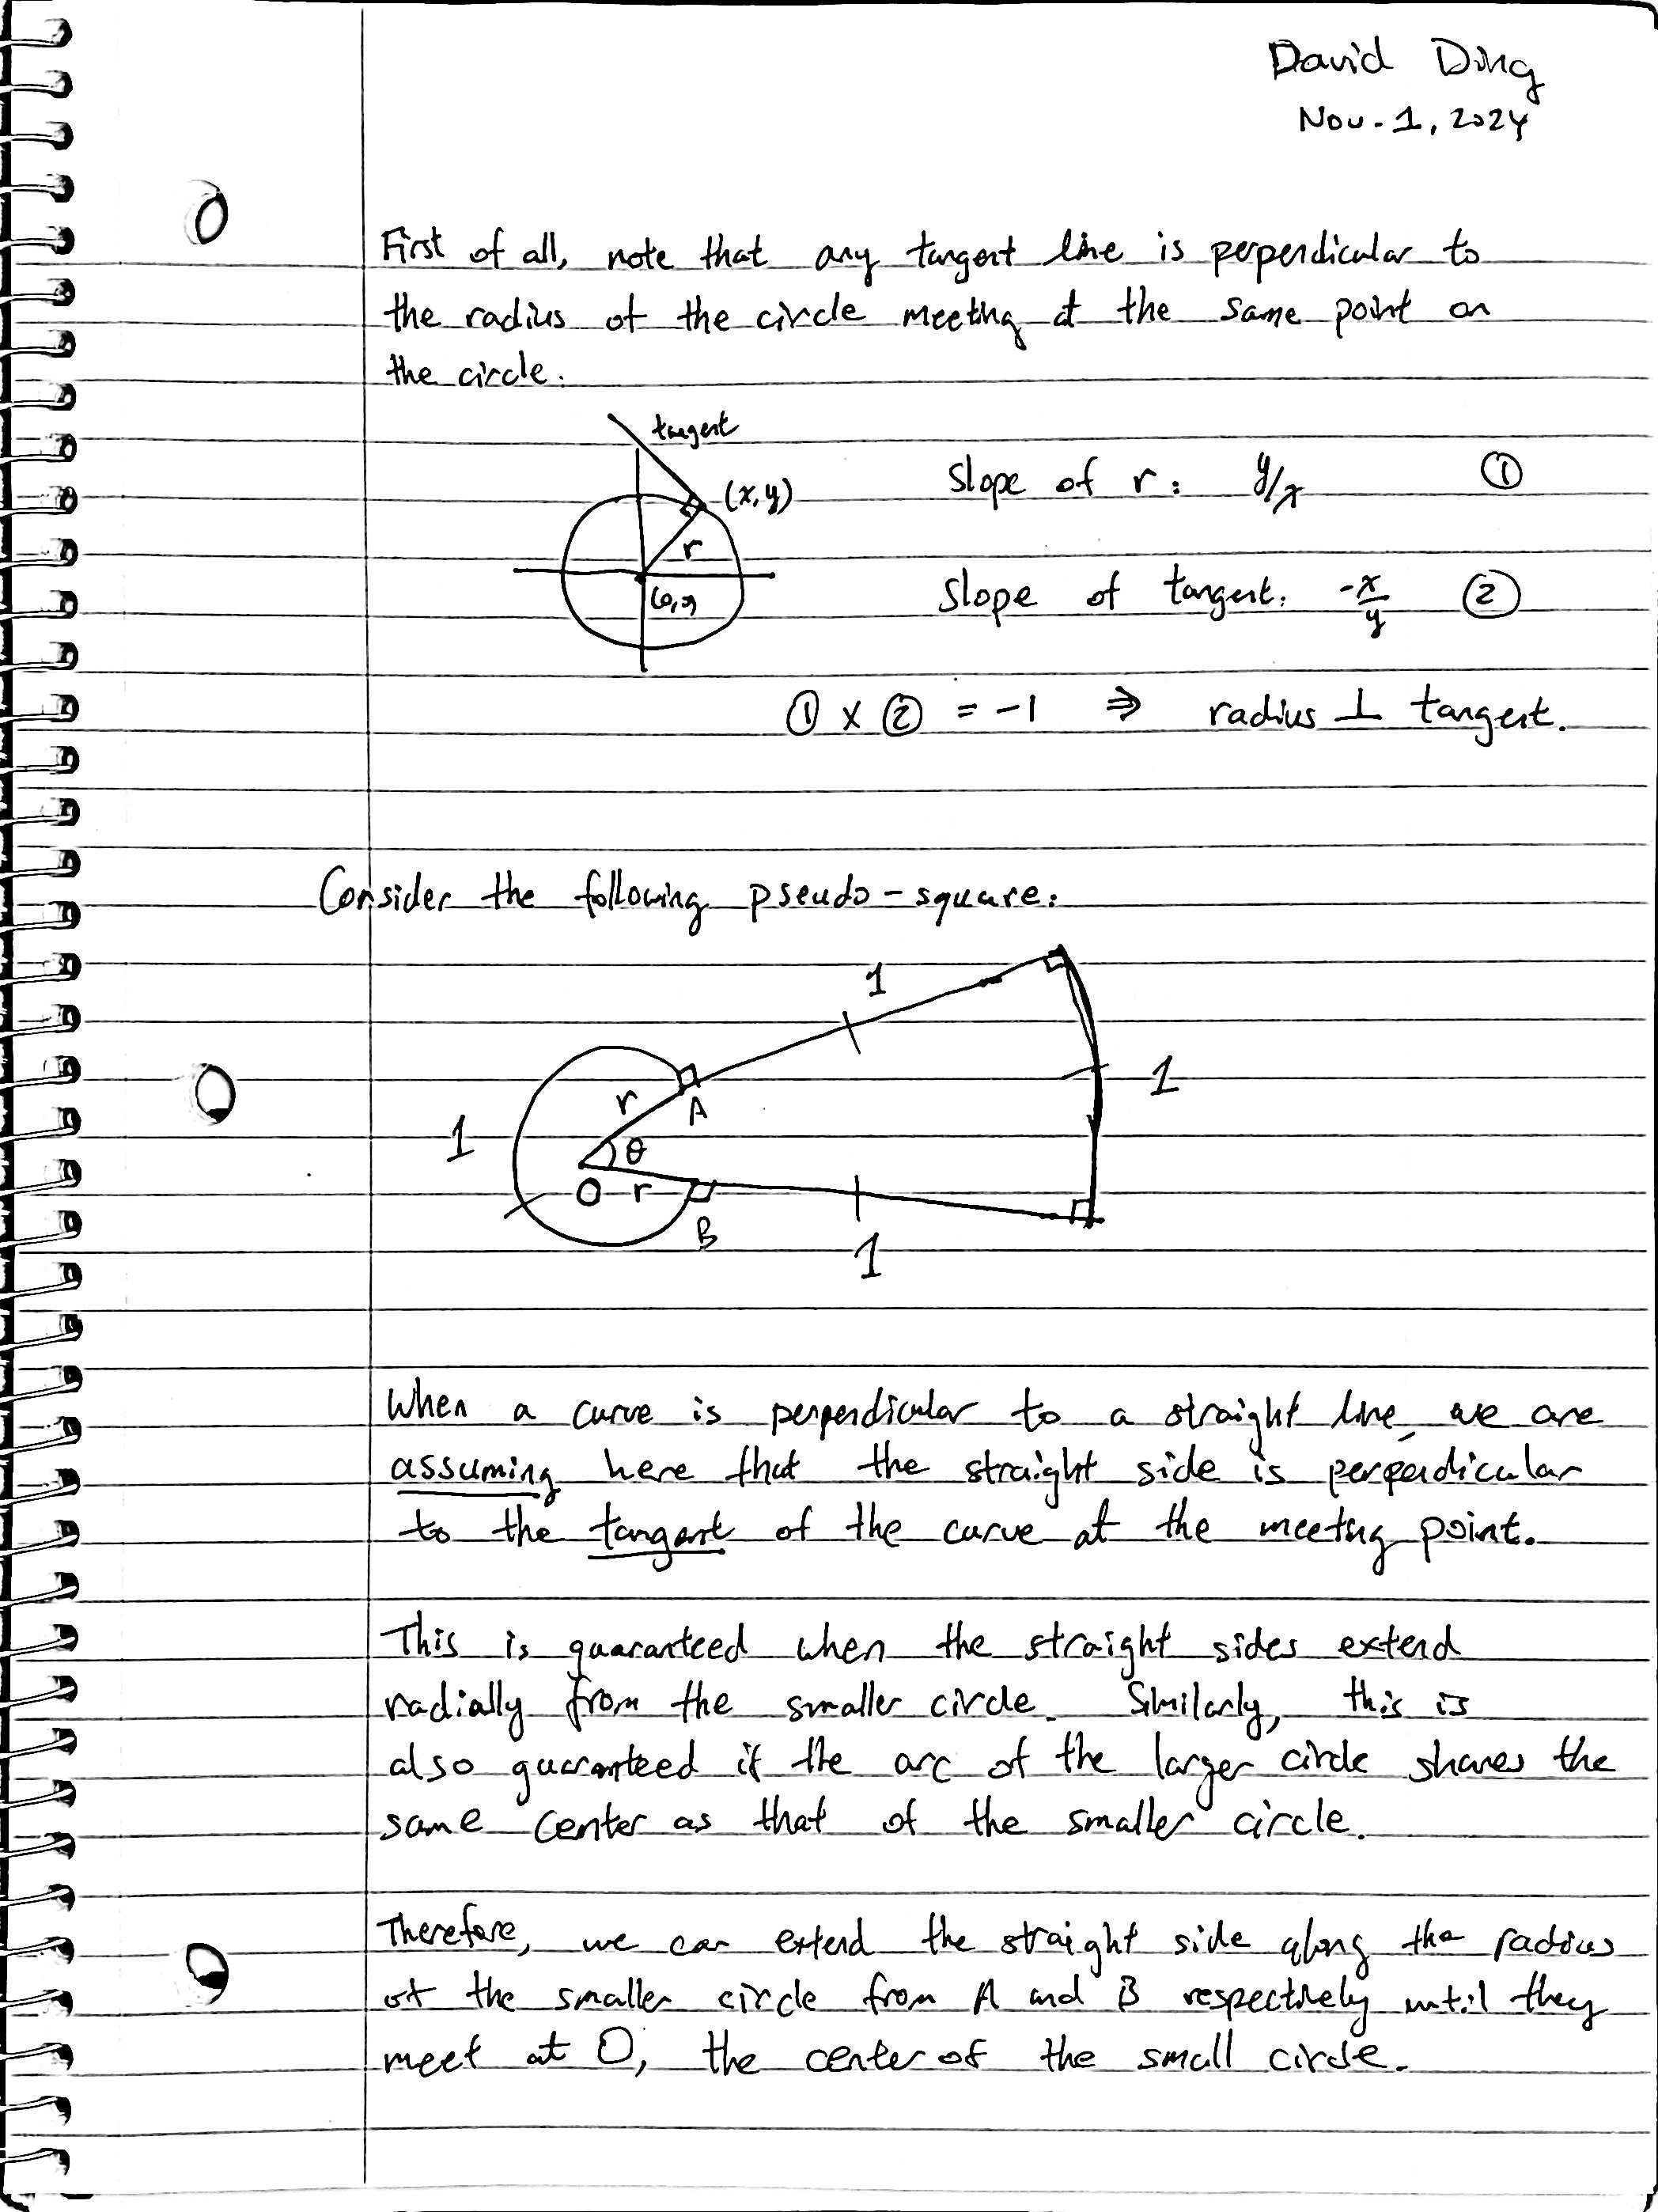 David Ding
Nov. 1, 2024
First of all, note that any tangent line is perpendicular to
the radius of the circle meeting at the same point on
the circle.
tangent
(x, y)
r
(0,0)
Slope of r: y/x ①
Slope of tangent: -x/y ②
① x ② = -1 ⇒ radius ⊥ tangent.
Consider the following pseudo-square:
1
1
r
A
1
θ
O r
B
1
When a curve is perpendicular to a straight line, we are
assuming here that the straight side is perpendicular
to the tangent of the curve at the meeting point.
This is guaranteed when the straight sides extend
radially from the smaller circle. Similarly, this is
also guaranteed if the arc of the larger circle shares the
same center as that of the smaller circle.
Therefore, we can extend the straight side along the radius
of the smaller circle from A and B respectively until they
meet at O, the center of the small circle.